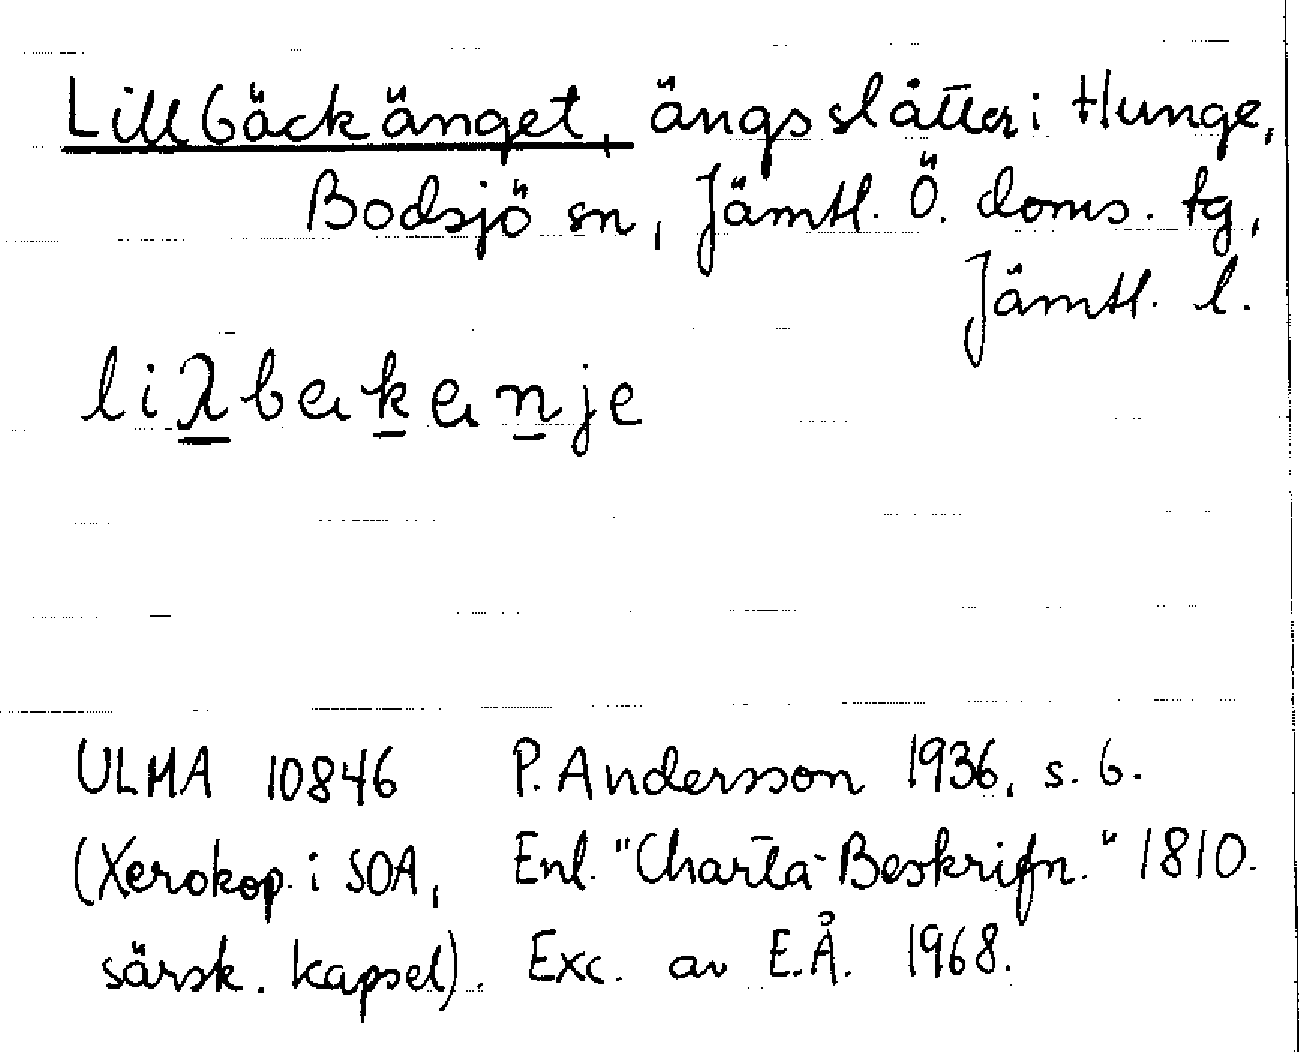 Lillbäckänget, ängsslåtter i Hunge,
Bodsjö sn, Jämtl. Ö. doms. tg,
Jämtl. l.
liλbakanje
ULMA 10846 P. Andersson 1936, s. 6.
(Xerokop. i SOA, Enl. "Charta-Beskrifn." 1810.
särsk. kapsel). Exc. av E.Å. 1968.